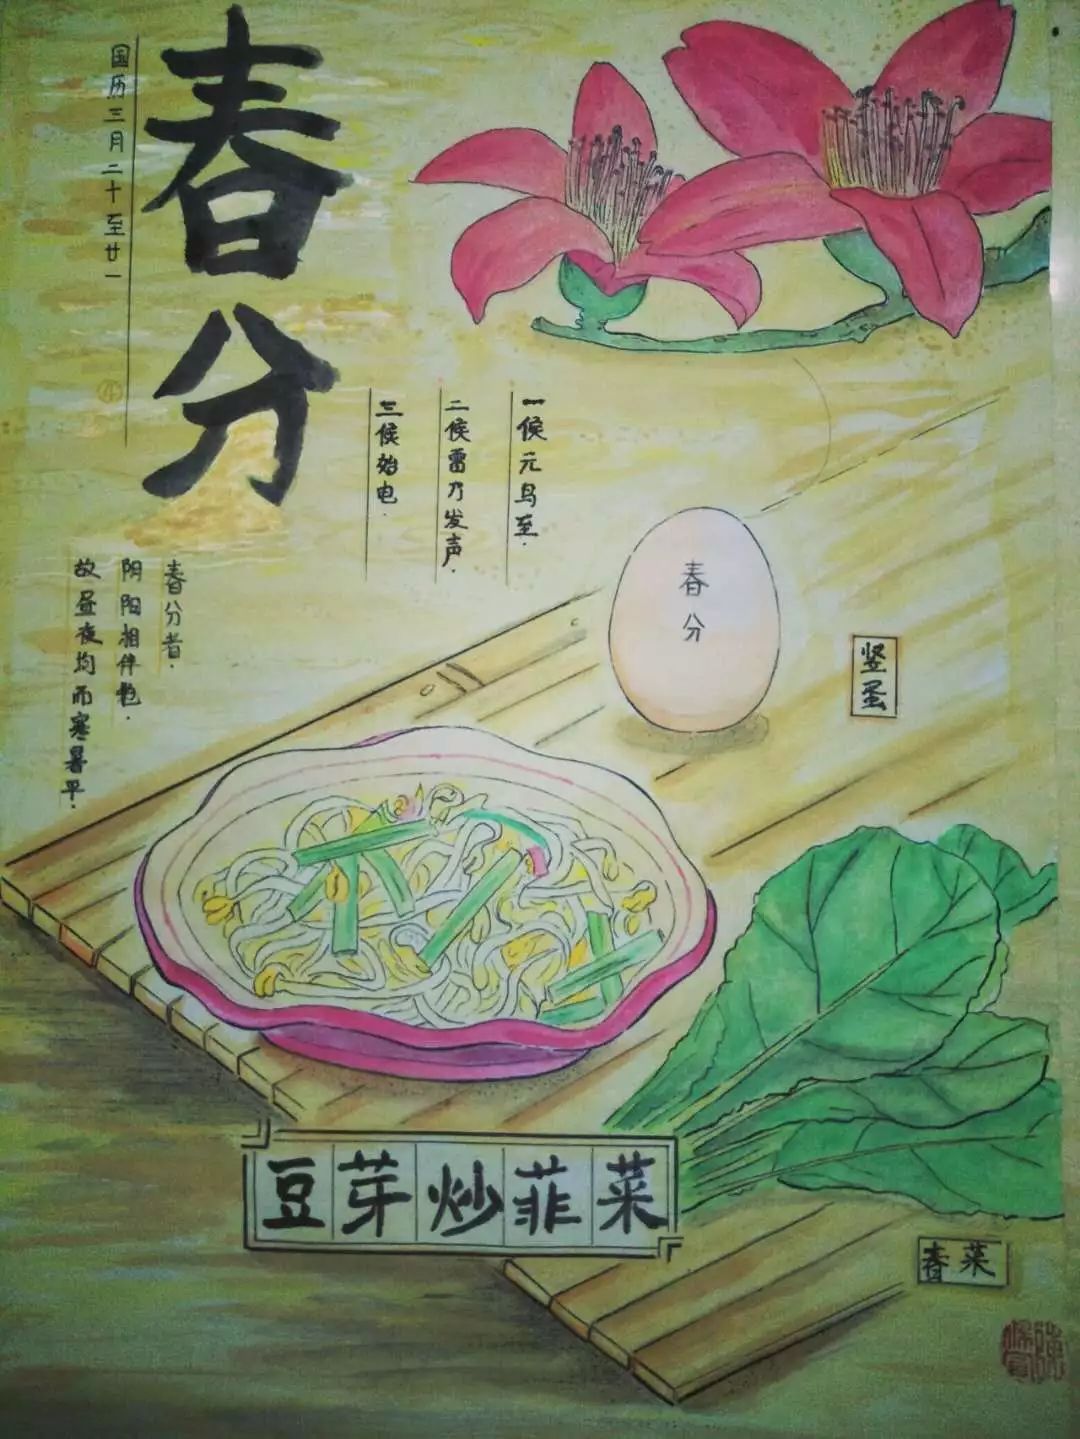 春分
国历三月二十至廿一
④
一候元鸟至.
二候雷乃发声.
三候始电.
春分者.
阴阳相伴
故昼夜均而寒暑平.
春分
竖蛋
豆芽炒韮菜
春菜